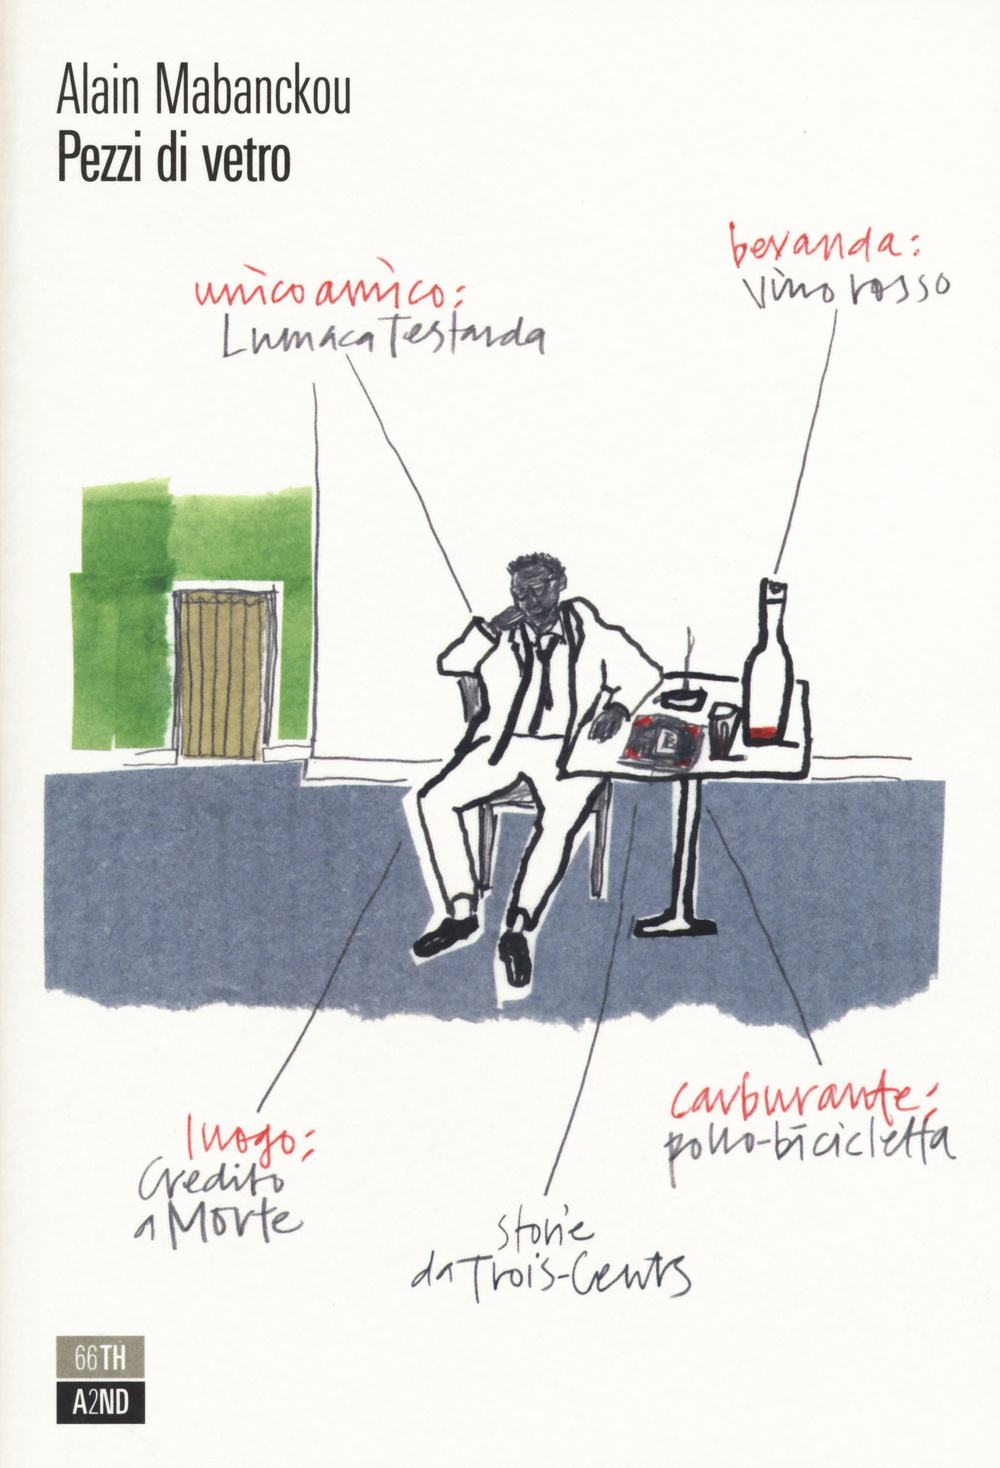 Alain Mabanckou
Pezzi di vetro
bevanda:
vino rosso
unico amico:
Lumaca Testarda
luogo:
Credito
a Morte
carburante:
pollo-bicicletta
storie
da Trois-Cents
66TH
A2ND